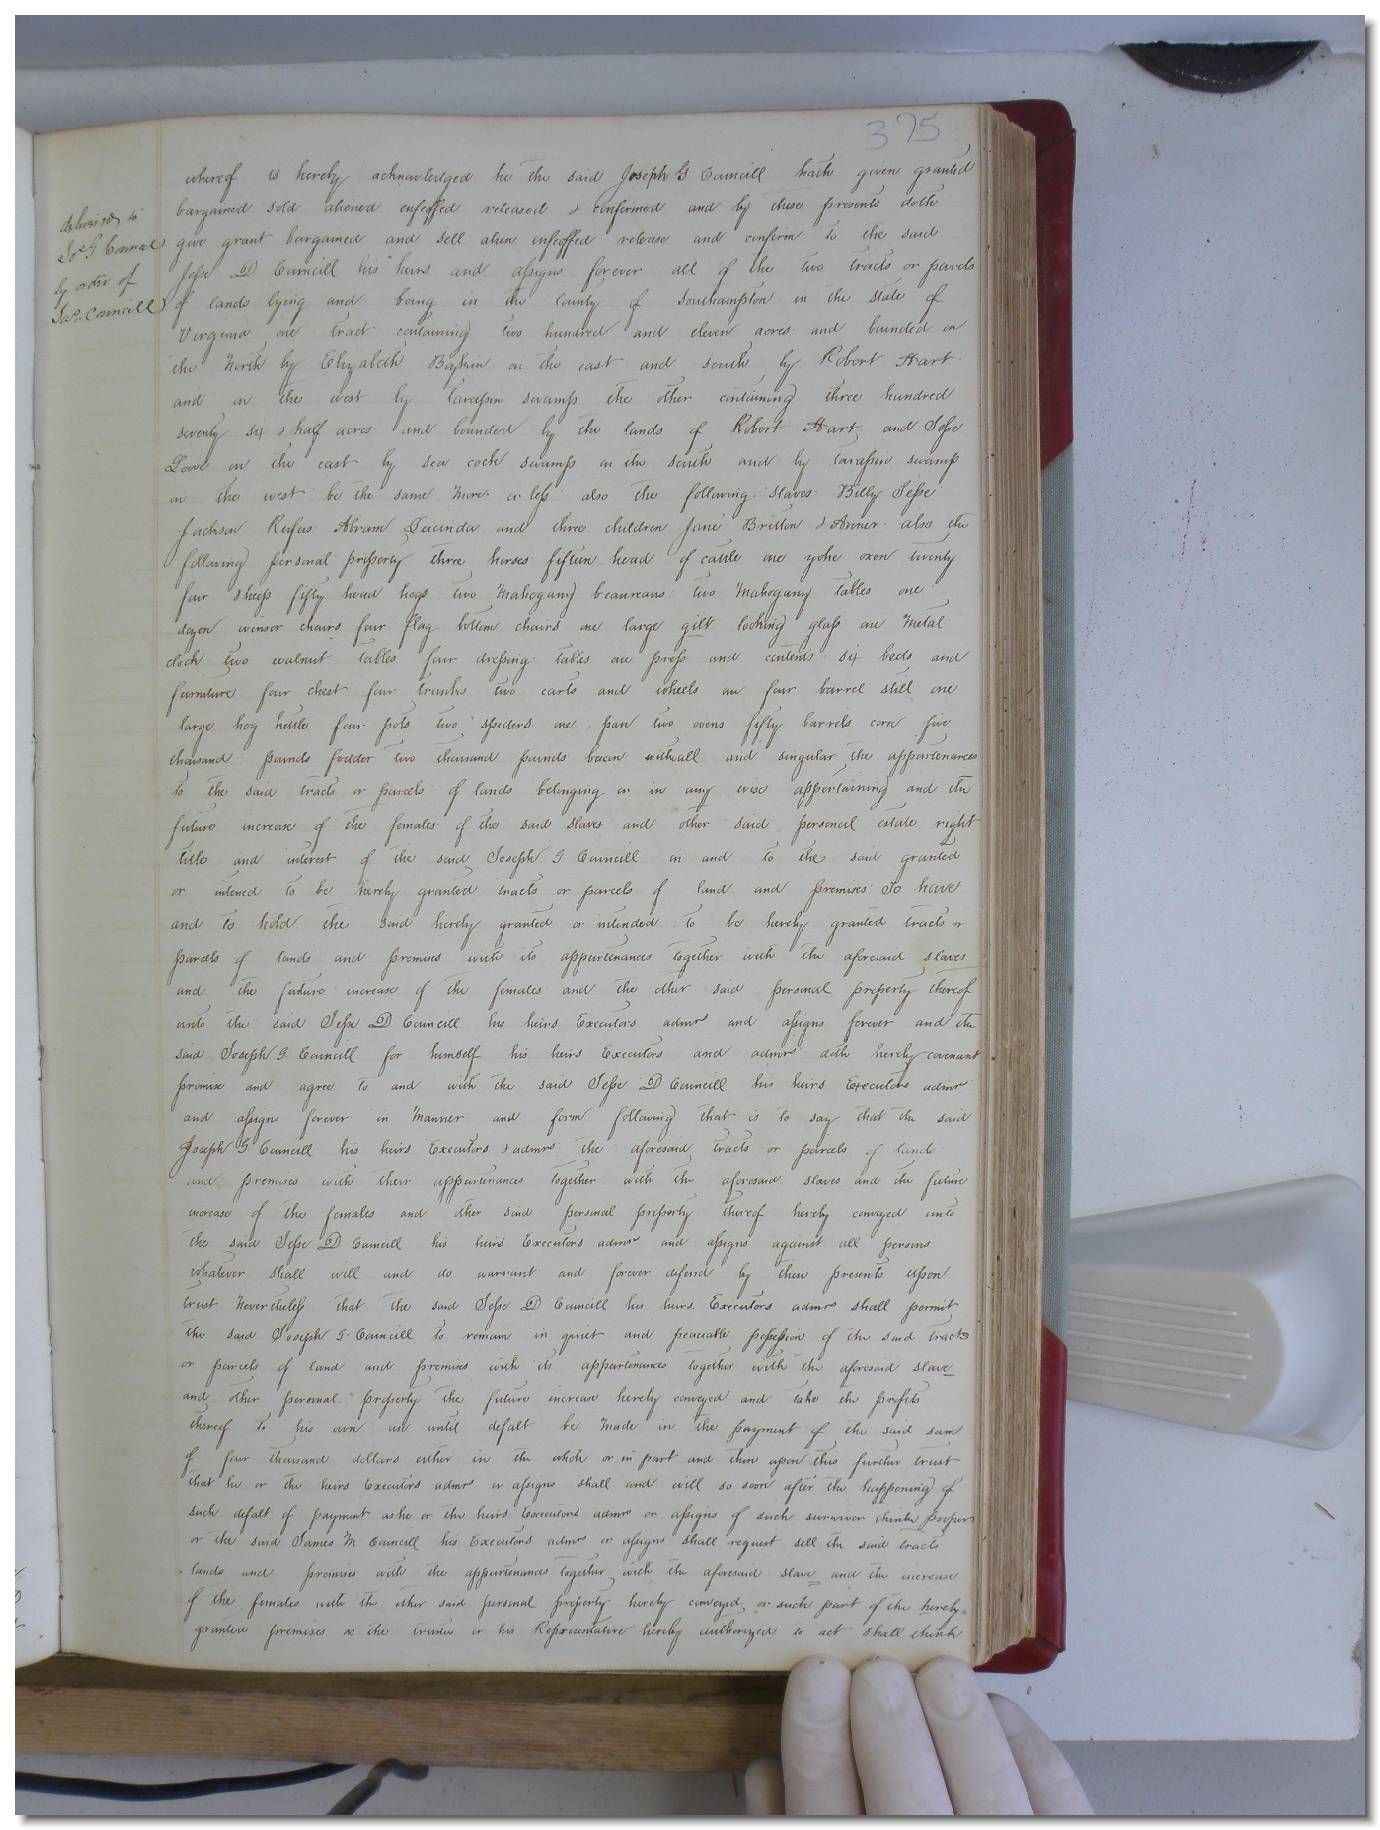 375
whereof is hereby acknowledged he the said Joseph G Councill hath given granted
bargained sold aliened enfeoffed released & confirmed and by these presents doth
give grant bargained and sell alien enfeoffed release and confirm to the said
Jesse D Councill his heirs and assigns forever all of the two tracts or parcels
of lands lying and being in the County of Southampton in the state of
Virginia one tract containing two hundred and eleven acres and bounded on
the North by Elizabeth Boykin on the east and south by Robert Hart
and on the west by Tarapin swamp the other containing three hundred
seventy six & half acres and bounded by the lands of Robert Hart and Jesse
Love on the east by sea cock swamp on the south and by tarapin swamp
on the west be the same more or less also the following slaves Billy Jesse
Jackson Rufus Abram Lucinda and three children Jane Britton & Anner also the
following personal property three horses fifteen head of cattle one yoke oxen twenty
four sheep fifty head hogs two Mahogany beaureaus two Mahogany tables one
dozen winsor chairs four flag bottom chairs one large gilt looking glass one Metal
clock two walnut tables four dressing tables one press and contents six beds and
furniture four chest four trunks two carts and wheels one four barrel still one
large hog kettle four pots two spiders one pan two ovens fifty barrels corn five
thousand pounds fodder two thousand pounds bacon withall and singular the appurtenances
to the said tracts or parcels of lands belonging or in any wise appertaining and the
future increase of the females of the said slaves and other said personal estate right
title and interest of the said Joseph G Councill in and to the said granted
or intened to be hereby granted tracts or parcels of land and premises To have
and to hold the said hereby granted or intended to be hereby granted tracts or
parcels of lands and premises with its appurtenances together with the aforesaid slaves
and the future increase of the females and the other said personal property thereof
unto the said Jesse D Councill his heirs Executors admrs and assigns forever and the
said Joseph G. Councill for himself his heirs Executors and admrs doth hereby covenant
promise and agree to and with the said Jesse D Councill his heirs Executors admrs
and assigns forever in Manner and form following that is to say that the said
Joseph G Councill his heirs Executors & admrs the aforesaid tracts or parcels of lands
and premises with their appurtenances together with the aforesaid slaves and the future
increase of the females and other said personal property thereof hereby conveyed unto
the said Jesse D Councill his heirs Executors admrs and assigns against all persons
whatever shall will and do warrant and forever defend by these presents upon
trust Nevertheless that the said Jesse D Councill his heirs Executors admrs shall permit
the said Joseph G. Councill to remain in quiet and peaceable possession of the said tracts
or parcels of land and premises with its appurtenances together with the aforesaid slave
and other personal property the future increase hereby conveyed and take the profits
thereof to his own use until defalt be Made in the payment of the said sum
of four thousand dollars either in the whole or in part and then upon this further trust
that he or the heirs Executors admrs or assigns shall and will so soon after the happening of
such defalt of payment as he or the heirs Executors admrs or assigns of such survivor thinks proper
or the said James M Councill his Executors admrs or assigns shall request sell the said tracts
lands and premises with the appurtenances together with the aforesaid slave and the increase
of the females with the other said personal property hereby conveyed or such part of the hereby
granted premises as the trustee or his Representative hereby authorized to act shall think
delivered to
Jos. G Councill
by order of
Jas. Councill